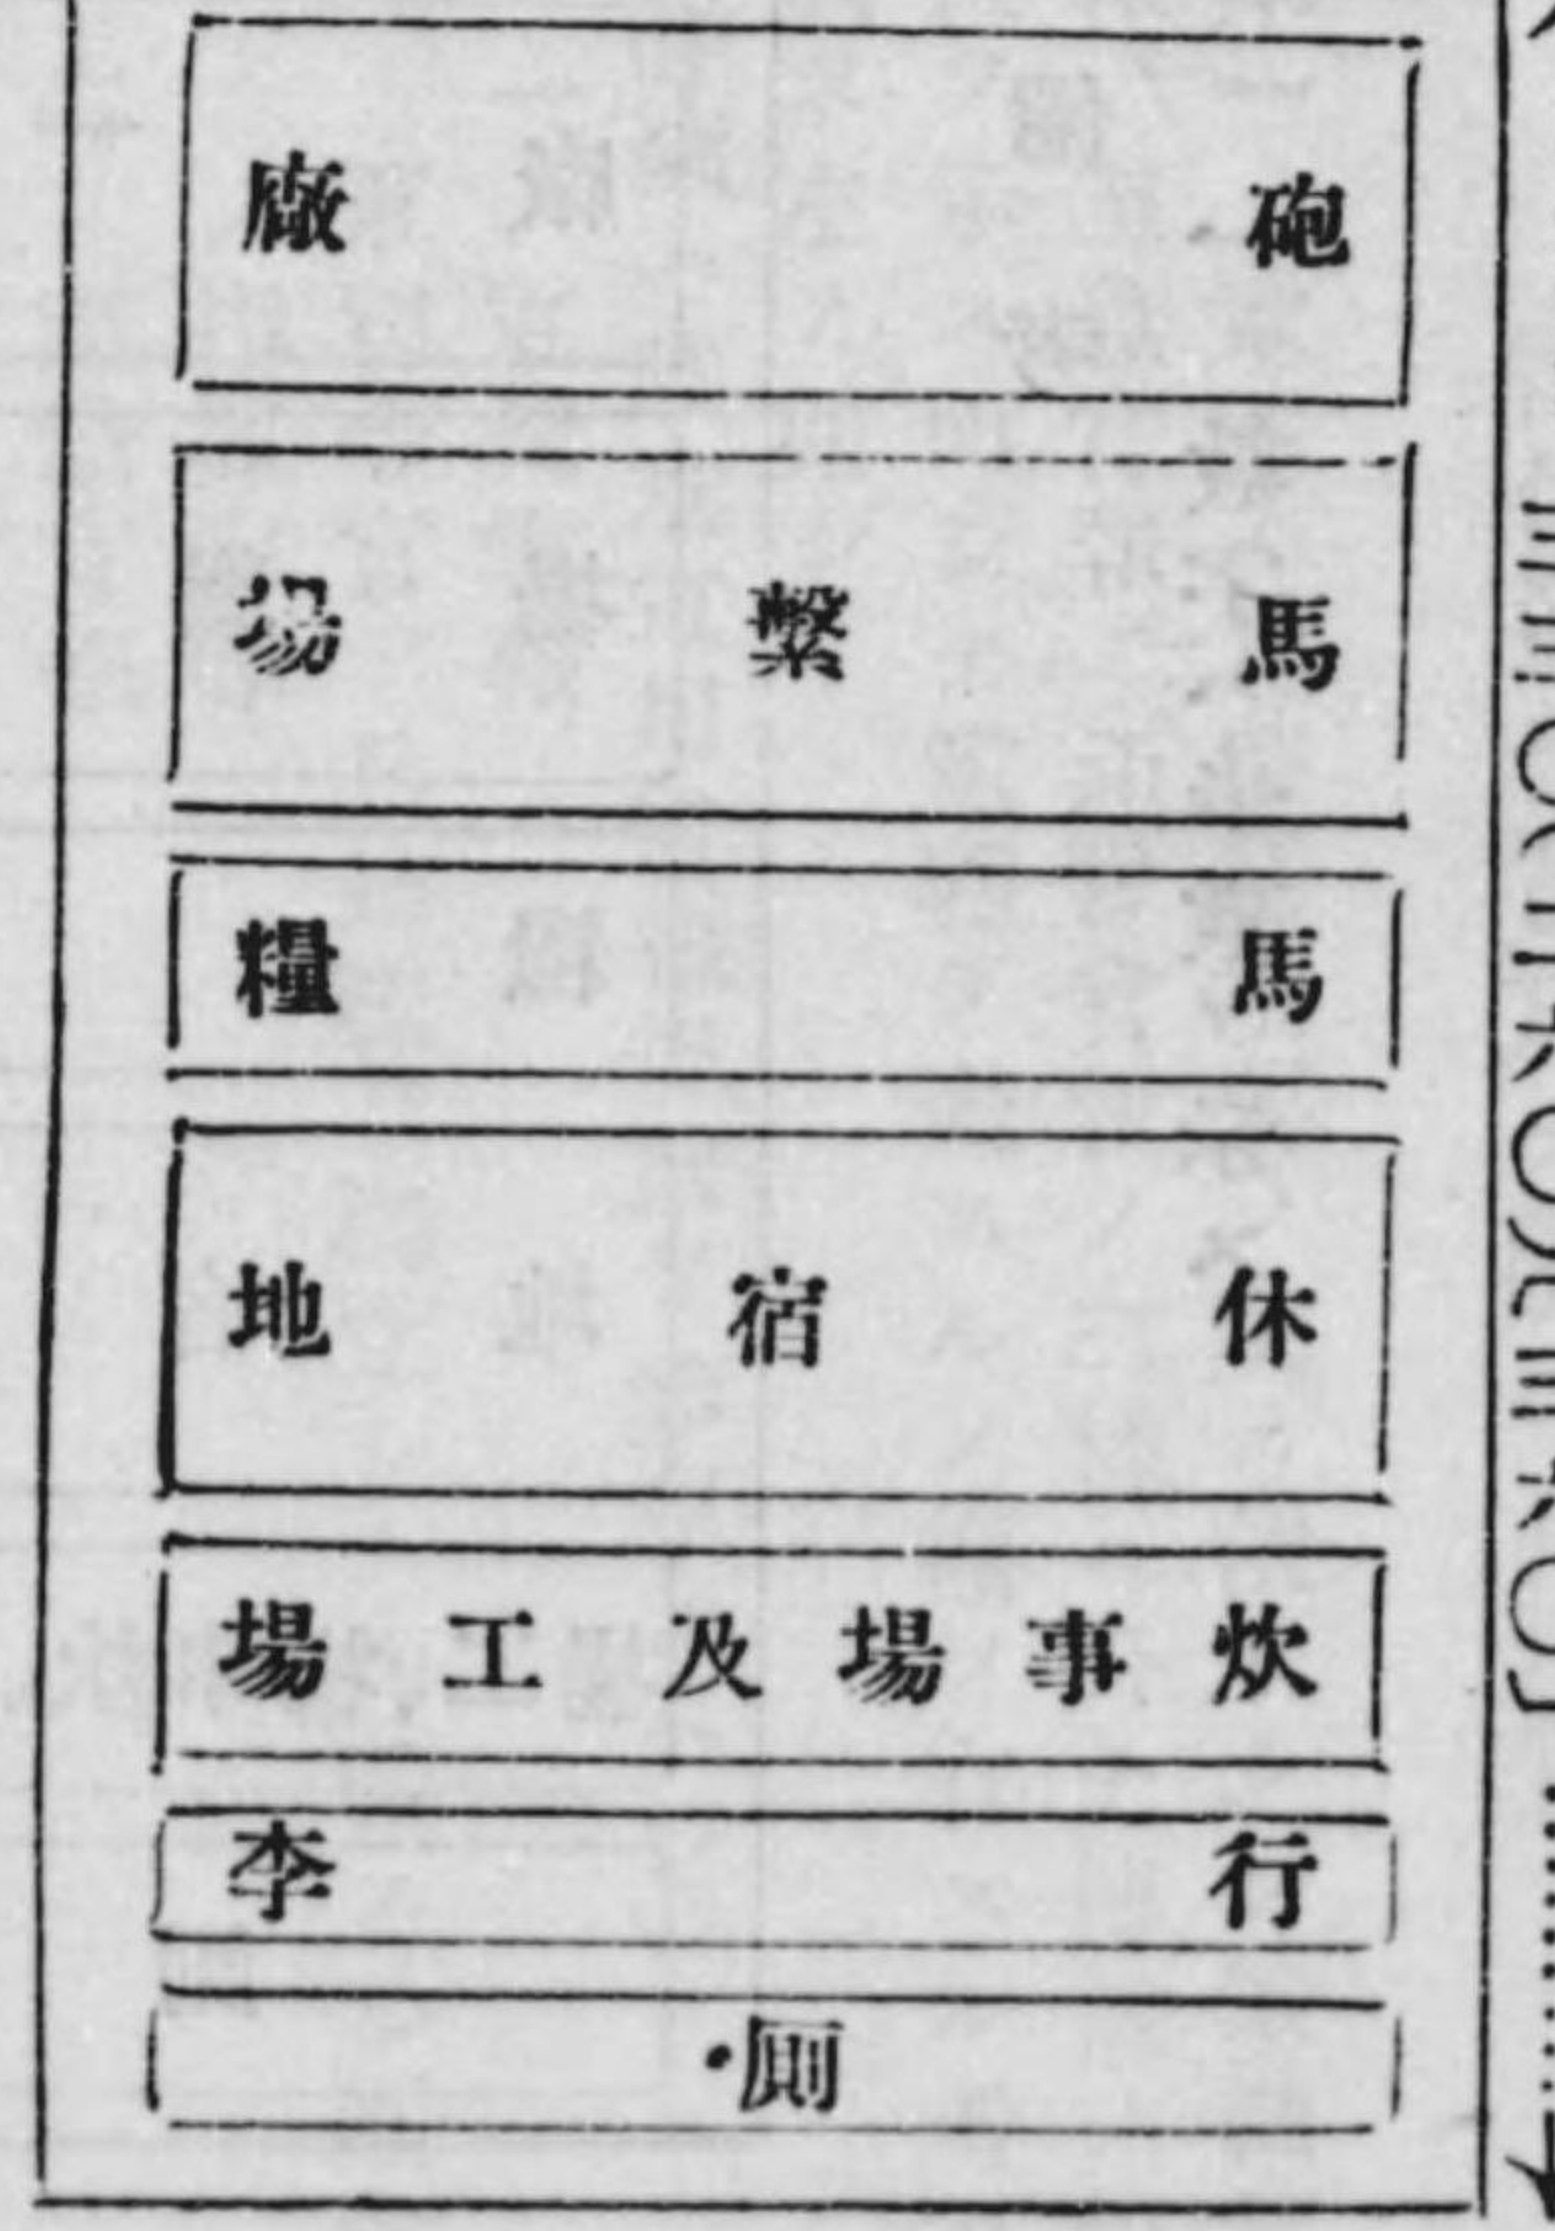 砲廠
馬繫場
馬糧
休宿地
炊事場及工場
行李
厠